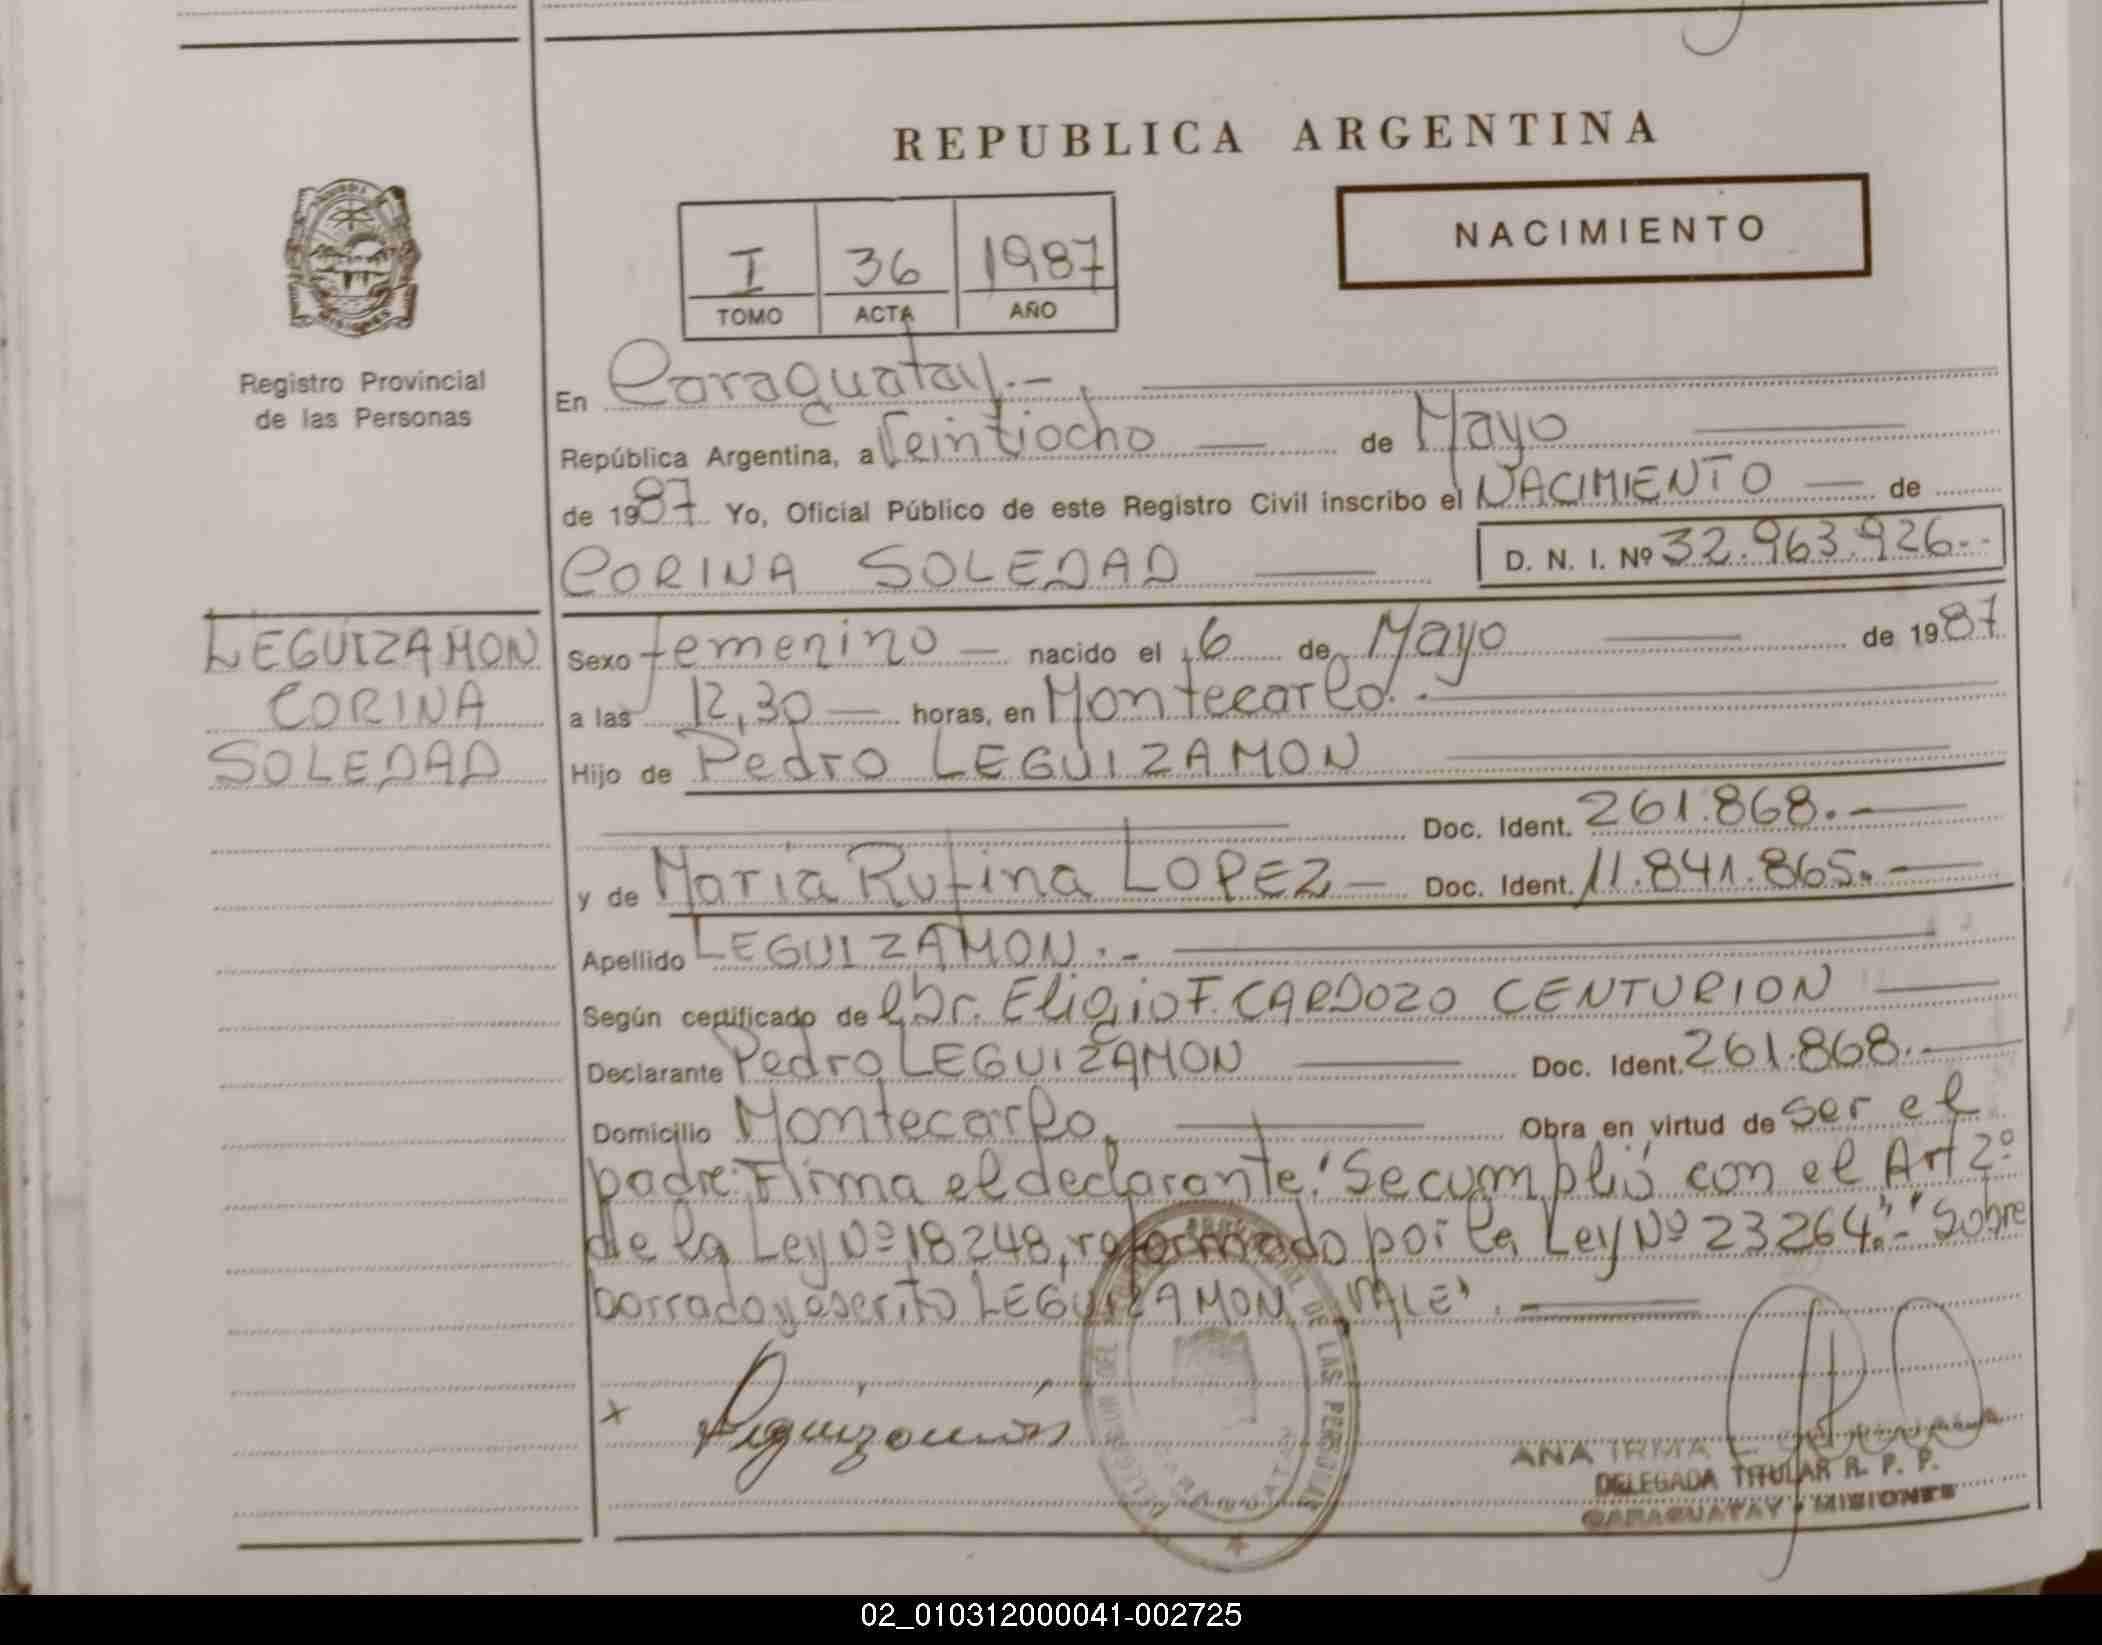 REPUBLICA ARGENTINA
NACIMIENTO
I 36 1987
TOMO ACTA AÑO
MISIONES
Registro Provincial
de las Personas
En Caraguatay.-
República Argentina, a Veintiocho de Mayo
de 1987 Yo, Oficial Público de este Registro Civil inscribo el NACIMIENTO de
CORINA SOLEDAD D. N. I. Nº 32.963.926.-
LEGUIZAMON
CORINA
SOLEDAD
Sexo femenino nacido el 6 de Mayo de 1987
a las 12,30 horas, en Montecarlo.-
Hijo de Pedro LEGUIZAMON
Doc. Ident. 261.868.-
y de Maria Rufina LOPEZ Doc. Ident. 11.841.865.-
Apellido LEGUIZAMON.-
Según certificado de el Dr. Eligio F. CARDOZO CENTURION
Declarante Pedro LEGUIZAMON Doc. Ident. 261.868.-
Domicilio Montecarlo, Obra en virtud de ser el
padre. Firma el declarante. "Se cumplió con el Art 2º
de la Ley Nº 18248, reformado por la Ley Nº 23264".- "Sobre
borrado y escrito LEGUIZAMON VALE".
x Leguizamón
DE LAS PERSONAS
ANA IRMA
DELEGADA TITULAR R. P. P.
CARAGUATAY - MISIONES
02_010312000041-002725